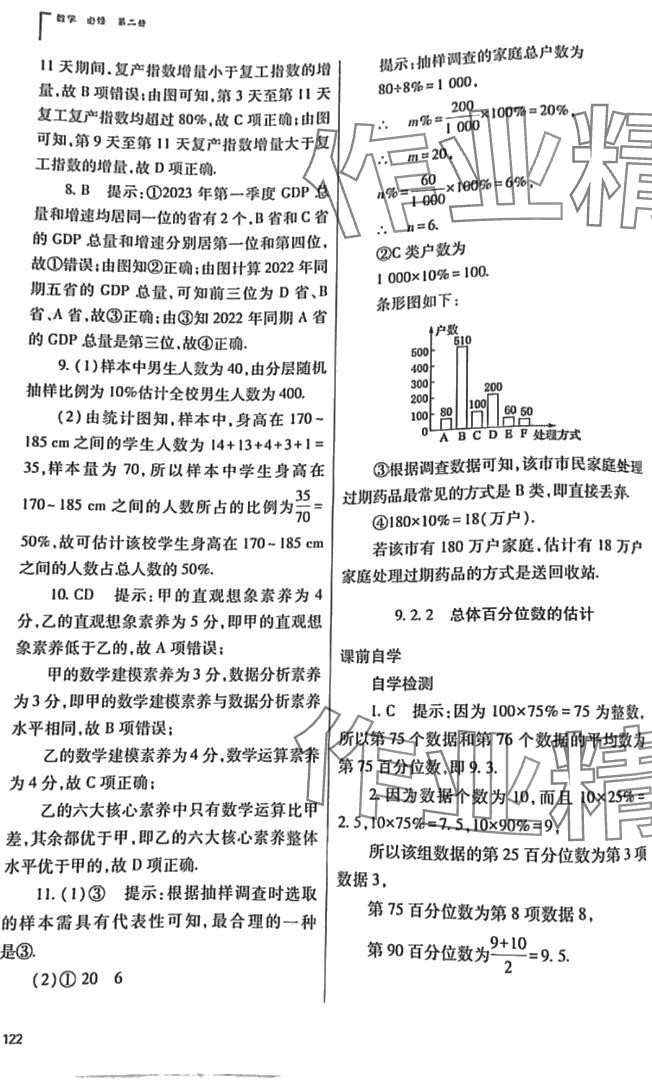 数学 必修 第二册
11 天期间,复产指数增量小于复工指数的增
量,故 B 项错误;由图可知,第 3 天至第 11 天
复工复产指数均超过 80%,故 C 项正确;由图
可知,第 9 天至第 11 天复产指数增量大于复
工指数的增量,故 D 项正确.
8. B 提示:①2023 年第一季度 GDP 总
量和增速均居同一位的省有 2 个,B 省和 C 省
的 GDP 总量和增速分别居第一位和第四位,
故①错误;由图知②正确;由图计算 2022 年同
期五省的 GDP 总量,可知前三位为 D 省、B
省、A 省,故③正确;由③知 2022 年同期 A 省
的 GDP 总量是第三位,故④正确.
9. (1)样本中男生人数为 40,由分层随机
抽样比例为 10%估计全校男生人数为 400.
(2)由统计图知,样本中,身高在 170~
185 cm 之间的学生人数为 14+13+4+3+1=
35,样本量为 70,所以样本中学生身高在
170~185 cm 之间的人数所占的比例为35/70=
50%,故可估计该校学生身高在 170~185 cm
之间的人数占总人数的 50%.
10. CD 提示:甲的直观想象素养为 4
分,乙的直观想象素养为 5 分,即甲的直观想
象素养低于乙的,故 A 项错误;
甲的数学建模素养为 3 分,数据分析素养
为 3 分,即甲的数学建模素养与数据分析素养
水平相同,故 B 项错误;
乙的数学建模素养为 4 分,数学运算素养
为 4 分,故 C 项正确;
乙的六大核心素养中只有数学运算比甲
差,其余都优于甲,即乙的六大核心素养整体
水平优于甲的,故 D 项正确.
11. (1)③ 提示:根据抽样调查时选取
的样本需具有代表性可知,最合理的一种
是③.
(2)① 20 6
122
提示:抽样调查的家庭总户数为
80÷8%=1 000,
∴ m%=200/1 000×100%=20%,
∴ m=20,
n%=60/1 000×100%=6%,
∴ n=6.
②C 类户数为
1 000×10%=100.
条形图如下:
户数
500
400
300
200
100
0
80
510
100
200
60
50
A B C D E F 处理方式
③根据调查数据可知,该市市民家庭处理
过期药品最常见的方式是 B 类,即直接丢弃.
④180×10%=18(万户).
若该市有 180 万户家庭,估计有 18 万户
家庭处理过期药品的方式是送回收站.
9. 2. 2 总体百分位数的估计
课前自学
自学检测
1. C 提示:因为 100×75%=75 为整数,
所以第 75 个数据和第 76 个数据的平均数为
第 75 百分位数,即 9. 3.
2. 因为数据个数为 10,而且 10×25%=
2. 5,10×75%=7. 5,10×90%=9,
所以该组数据的第 25 百分位数为第 3 项
数据 3,
第 75 百分位数为第 8 项数据 8,
第 90 百分位数为9+10/2=9. 5.
作业精
作业精